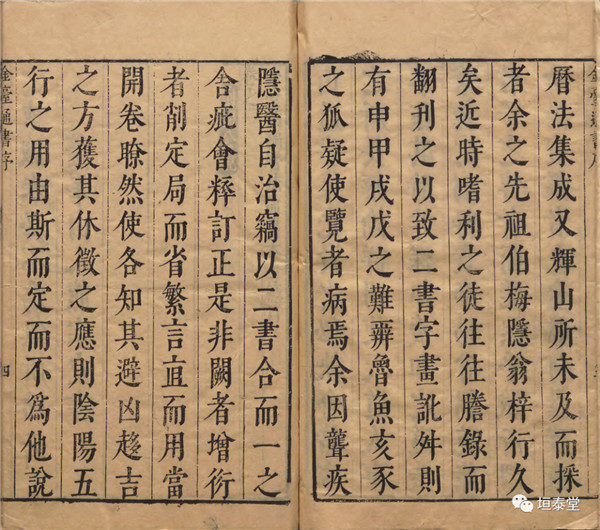 曆法集成又輝山所未及而採
者余之先祖伯梅隱翁梓行久
矣近時嗜利之徒往往謄錄而
翻刊之以致二書字畫訛舛則
有申甲戌戊之難辨魯魚亥豕
之狐疑使覽者病焉余因聾疾
隱醫自治竊以二書合而一之
舍疵會粹訂正是非闕者增衍
者削定局而省繁言直而用當
開卷瞭然使各知其避凶趨吉
之方獲其休徵之應則陰陽五
行之用由斯而定而不為他說
金臺通書序
四
垣泰堂